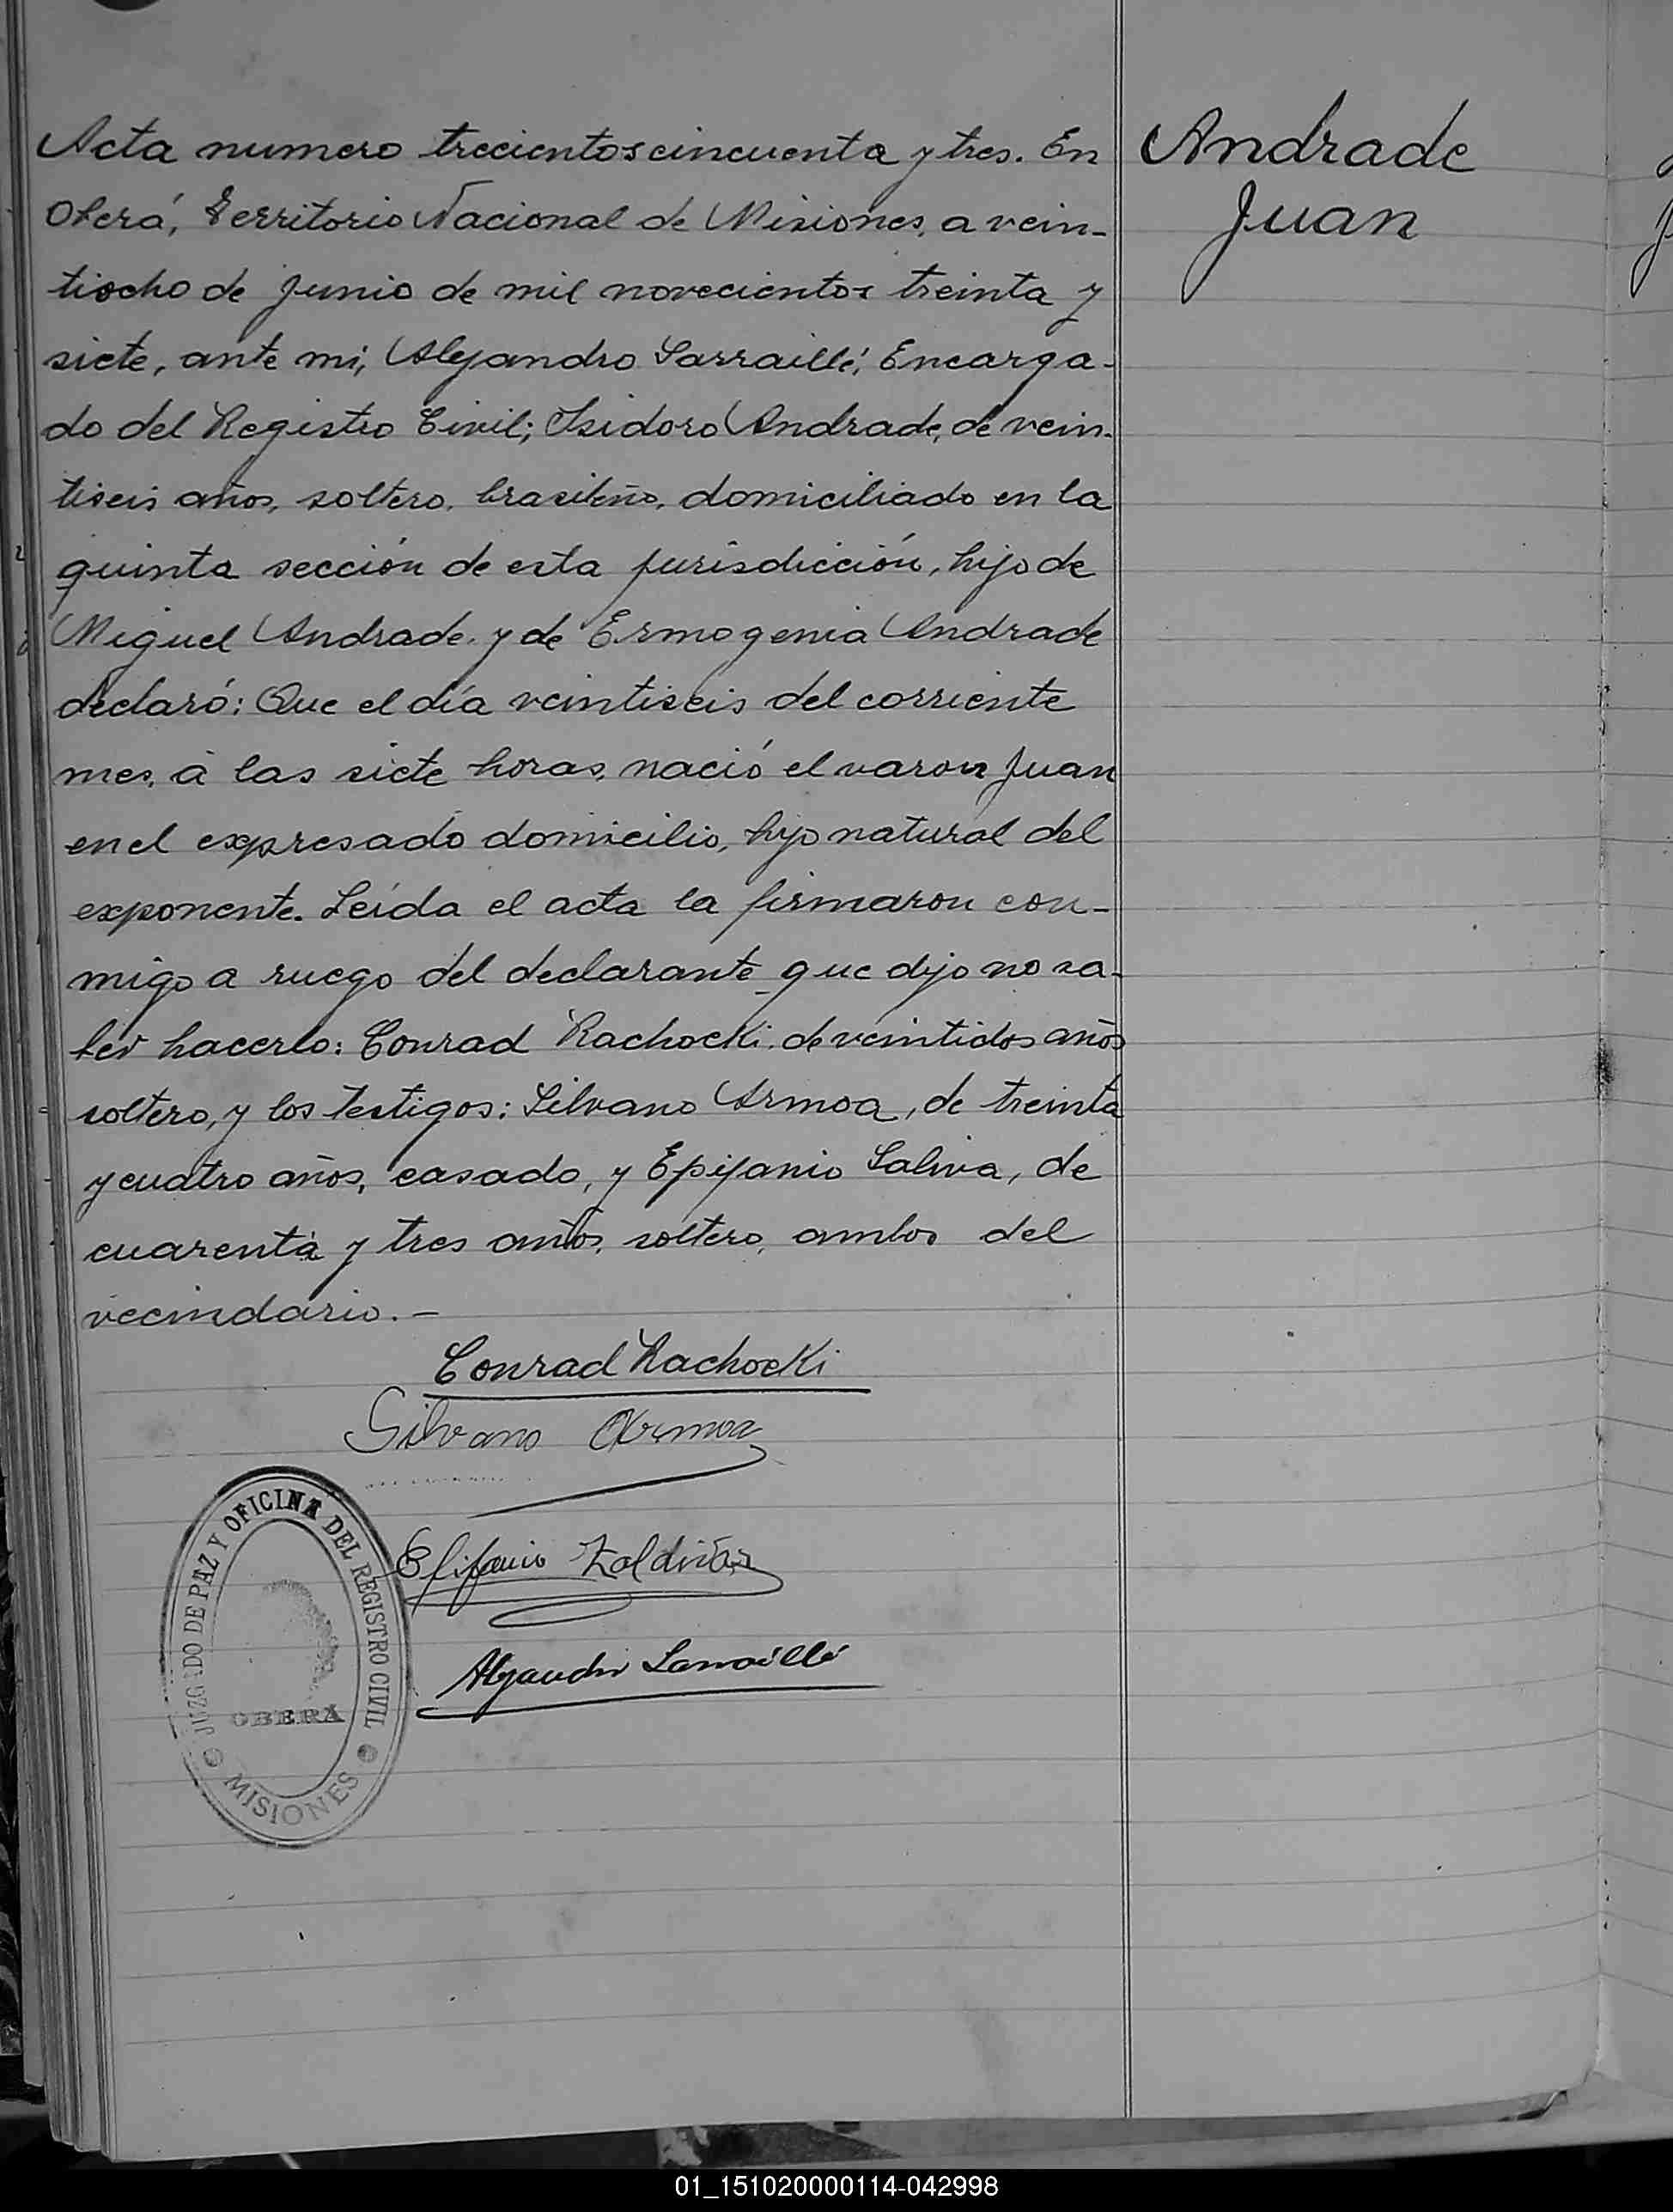 Acta numero trecientos cincuenta y tres. En
Oberá, Territorio Nacional de Misiones, a vein-
tiocho de Junio de mil novecientos treinta y
siete, ante mi, Alejandro Sarraillé, Encarga-
do del Registro Civil; Isidoro Andrade, de vein-
tiseis años, soltero, brasileño, domiciliado en la
quinta sección de esta jurisdicción, hijo de
Miguel Andrade y de Ermogenia Andrade
declaró: Que el día veintiseis del corriente
mes, a las siete horas, nació el varon Juan
en el expresado domicilio, hijo natural del
exponente. Leída el acta la firmaron con-
migo a ruego del declarante que dijo no sa-
ber hacerlo: Conrad Rachocki, de veintidos años
soltero, y los testigos: Silvano Armoa, de treinta
y cuatro años, casado, y Epifanio Saliva, de
cuarenta y tres años, soltero, ambos del
vecindario. -
Conrad Rachocki
Silvano Armoa
Epifanio Zaldivar
Alejandro Sarraillé
JUZGADO DE PAZ Y OFICINA DEL REGISTRO CIVIL
OBERA
MISIONES
Andrade
Juan
01_151020000114-042998